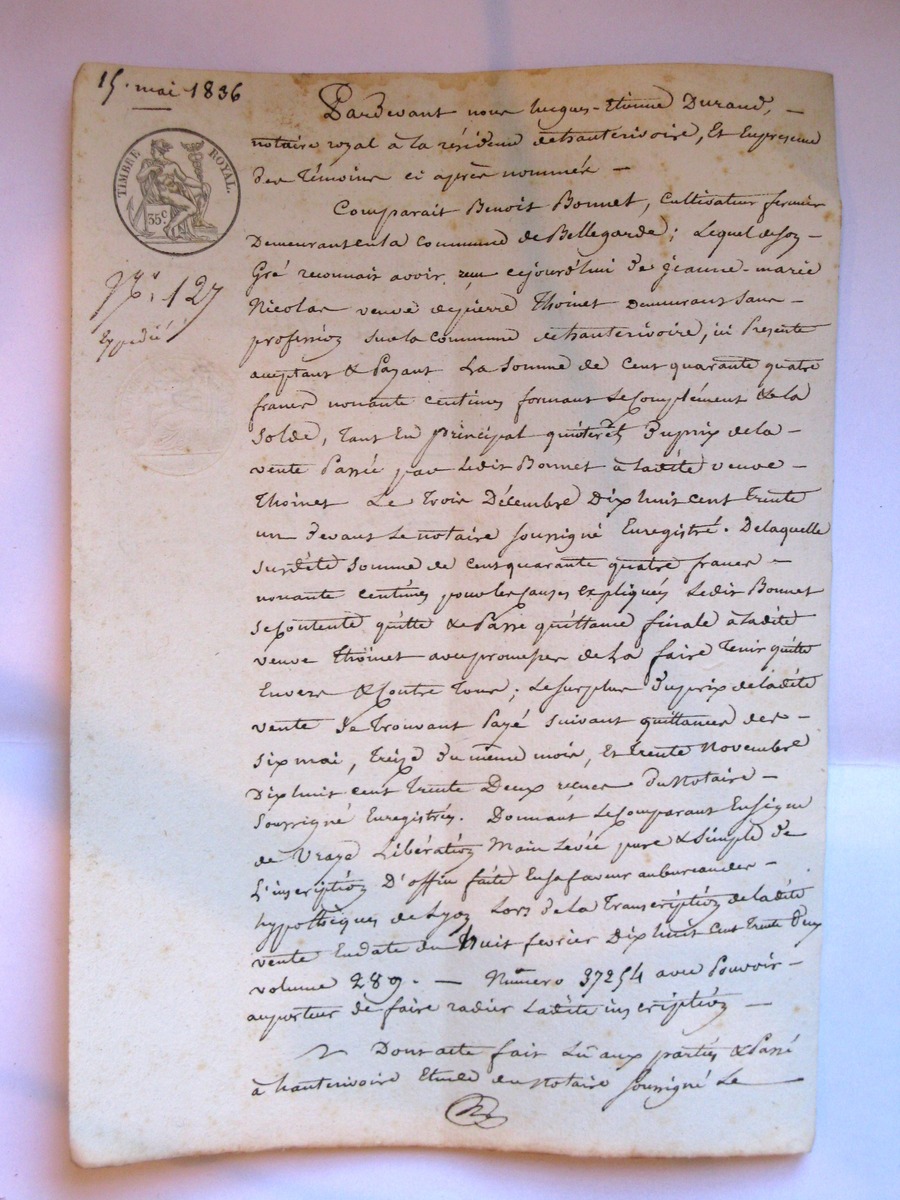 15. mai 1836
TIMBRE ROYAL.
35 c.
N.º 127
Expédié
Pardevant nous hugues-Etienne Durand, -
notaire royal à la résidence d'hauterivoire, Et En presence
des Témoins ci après nommés -
Comparait Benoit Bonnet, Cultivateur fermier
Demeurant en la Commune de Bellegarde; Lequel de son
Gré reconnait avoir reçu cejourd'hui de jeanne-marie
Nicolas veuve de pierre Thoinet demeurant sans -
profession sur la commune d'hauterivoire, ici Présente
aceptant & Payant La Somme de Cent quarante quatre
francs nonante centimes formant Le Complément & la
Solde, Tant En principal qu'intérêts Du prix de la -
vente Passée par Ledit Bonnet à Ladite veuve -
Thoinet Le Trois Décembre Dix huit cent Trente
un Devant Le notaire soussigné Enregistré. De laquelle
susdite Somme de cent quarante quatre francs -
nonante centimes pour les causes expliquées Ledit Bonnet
se Contente quitte & Passe quittance finale à Ladite
veuve Thoinet avec promesse de La faire Tenir quitte
Envers & Contre Tous; Le surplus Du prix de Ladite
vente Se Trouvant Payé Suivant quittances des -
Six mai, Treize du même mois, Et trente Novembre
Dix huit cent Trente Deux reçues Du Notaire -
Soussigné Enregistrées. Donnant Le Comparant En signe
de Vraye Libération Main Levée pure & Simple de
L'inscription D'offin faite En sa faveur au bureau des -
hypothèques de Lyon Lors de la Transcription de ladite
vente En date du Huit fevrier Dix huit Cent Trente Deux
volume 289. - Numero 37254 avec Pouvoir -
au porteur de faire radier Ladite inscription -
Dont acte fait Lu aux parties & Passé
à hauterivoire Etude du Notaire Soussigné Le